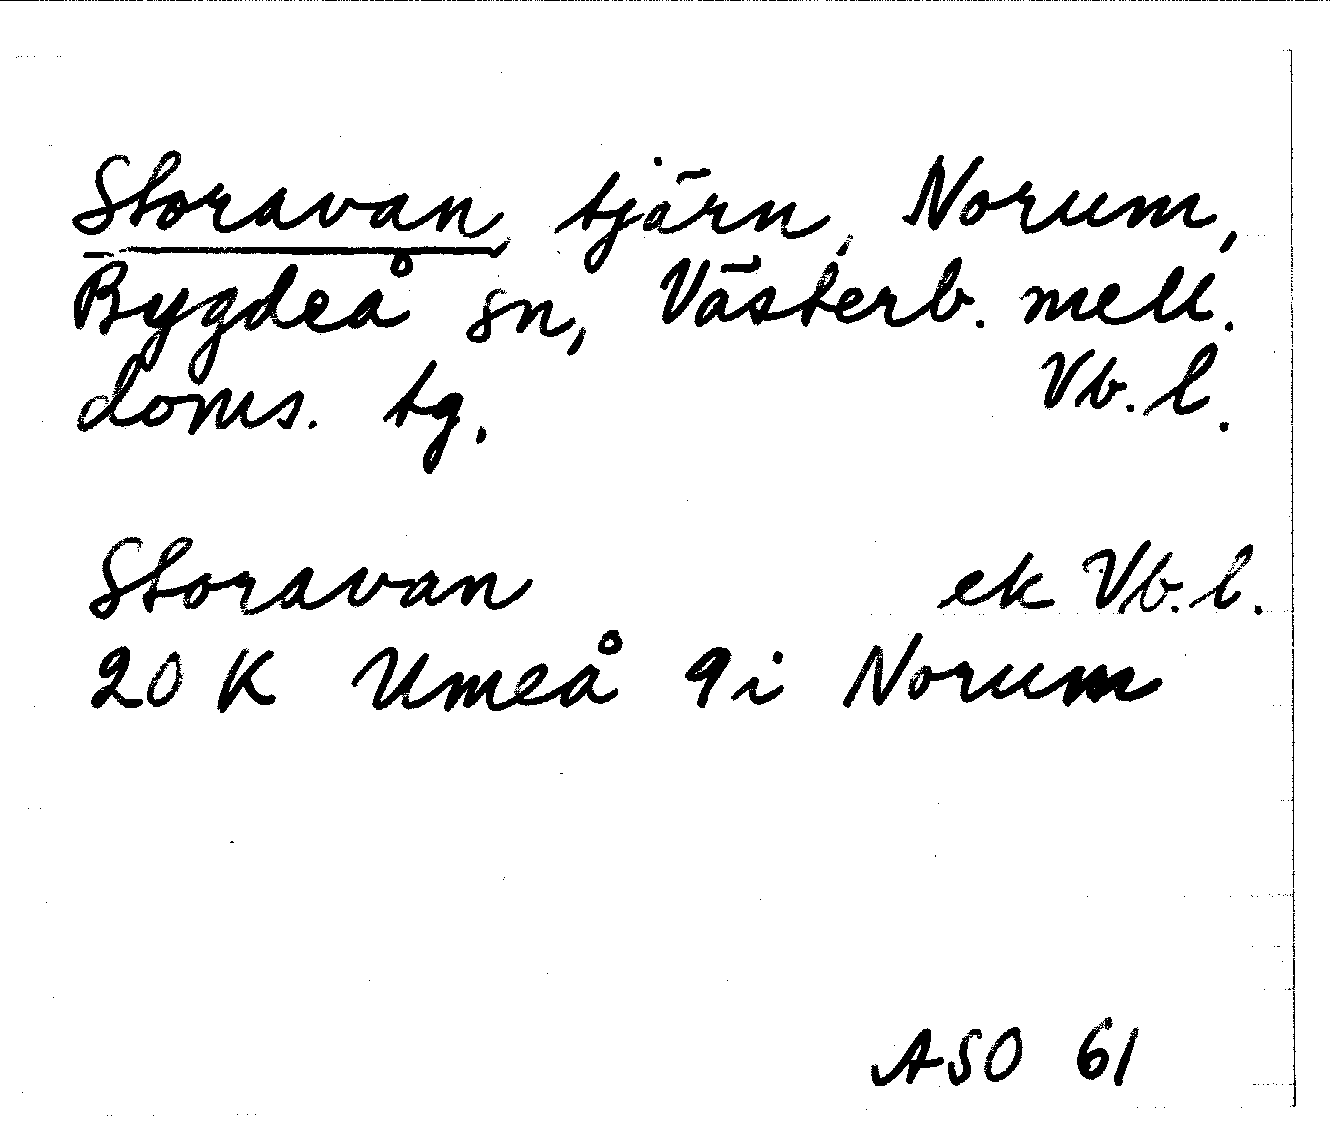 Storavan, tjärn, Norum,
Bygdeå sn, Västerb. mell.
doms. tg. Vb. l.
Storavan ek Vb. l.
20 K Umeå 9i Norum
ASO 61